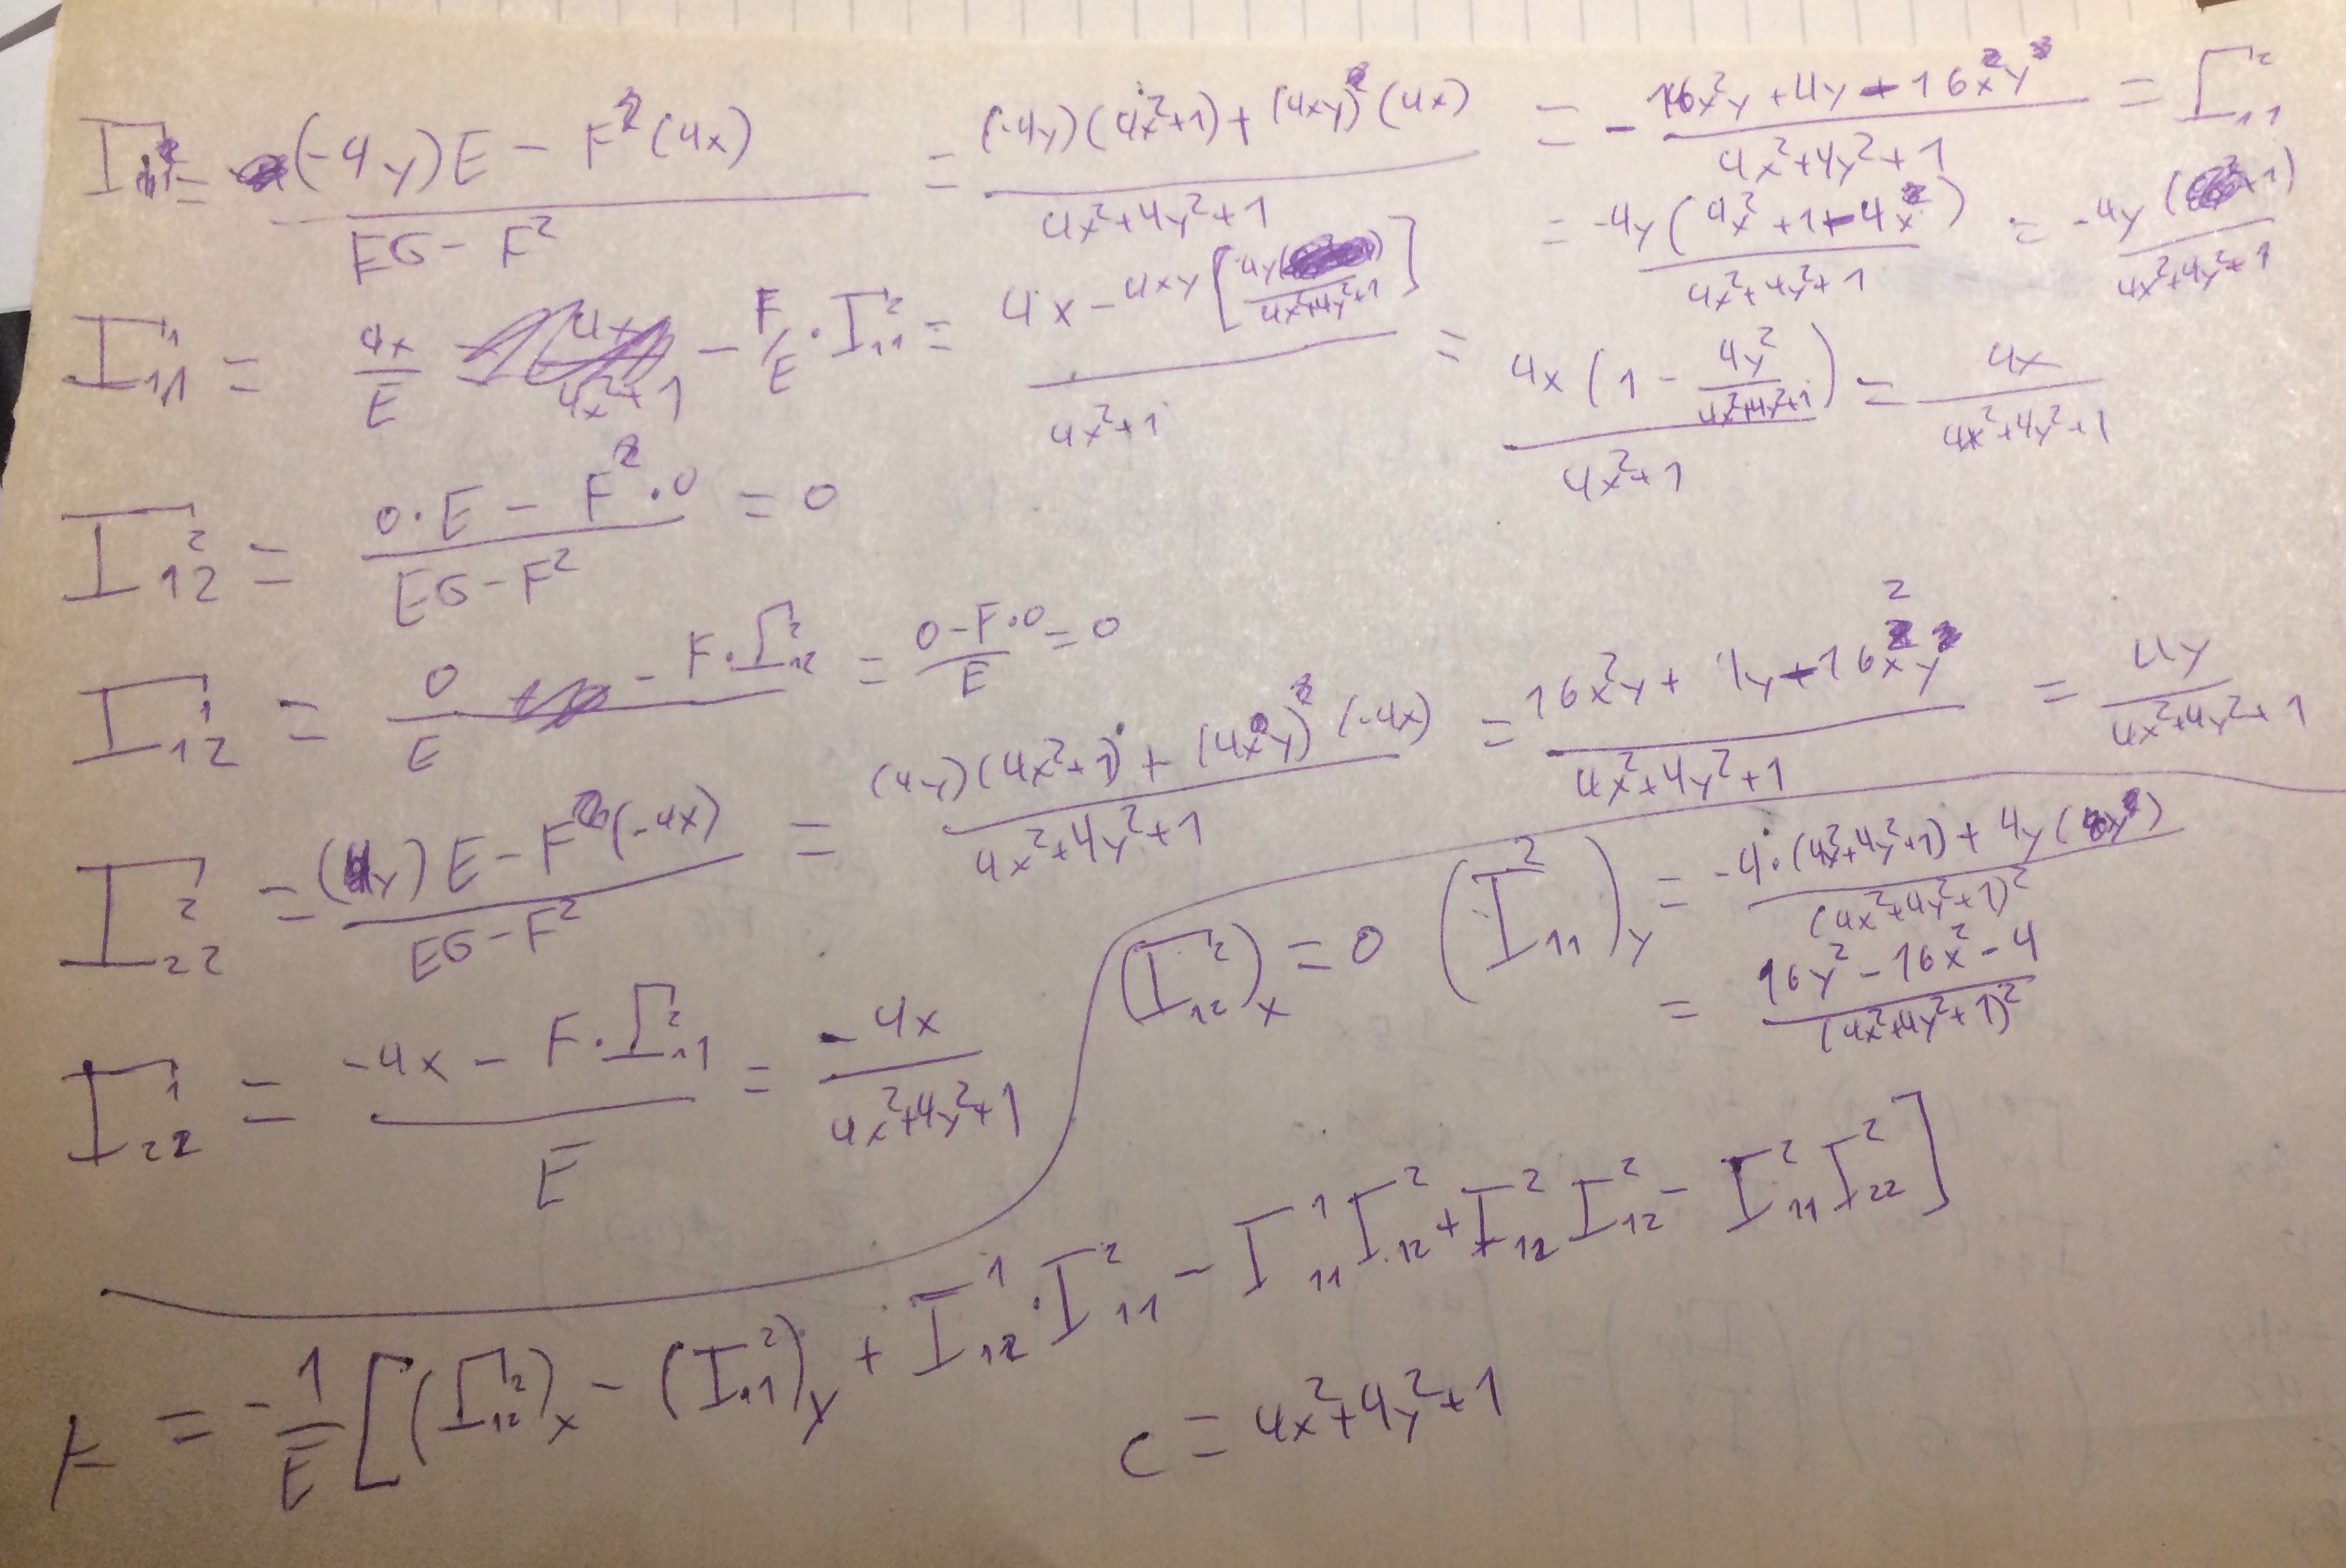 Γ²₁₁ = (-4y)E - F(4x) / EG - F² = (-4y)(4x²+1) + (4xy)(4x) / 4x²+4y²+1 = - 16x²y + 4y - 16x²y / 4x²+4y²+1 = Γ²₁₁
= -4y(4x²+1-4x²) / 4x²+4y²+1 = -4y / 4x²+4y²+1
Γ¹₁₁ = 4x/E - F/E · Γ²₁₁ = 4x - 4xy[4y / 4x²+4y²+1] / 4x²+1 = 4x(1 - 4y² / 4x²+4y²+1) / 4x²+1 = 4x / 4x²+4y²+1
Γ²₁₂ = 0·E - F·0 / EG - F² = 0
Γ¹₁₂ = 0 - F·Γ²₁₂ / E = 0-F·0 / E = 0
Γ²₂₂ = (4y)E - F(-4x) / EG - F² = (4y)(4x²+1) + (4xy)(-4x) / 4x²+4y²+1 = 16x²y + 4y - 16x²y / 4x²+4y²+1 = 4y / 4x²+4y²+1
Γ¹₂₂ = -4x - F·Γ²₁₁ / E = -4x / 4x²+4y²+1
(Γ²₁₂)x = 0 (Γ²₁₁)y = -4·(4x²+4y²+1) + 4y(8y) / (4x²+4y²+1)²
= 16y² - 16x² - 4 / (4x²+4y²+1)²
K = -1/E [(Γ²₁₂)x - (Γ²₁₁)y + Γ¹₁₂·Γ²₁₁ - Γ¹₁₁Γ²₁₂ + Γ²₁₂Γ²₁₂ - Γ²₁₁Γ²₂₂]
C = 4x²+4y²+1